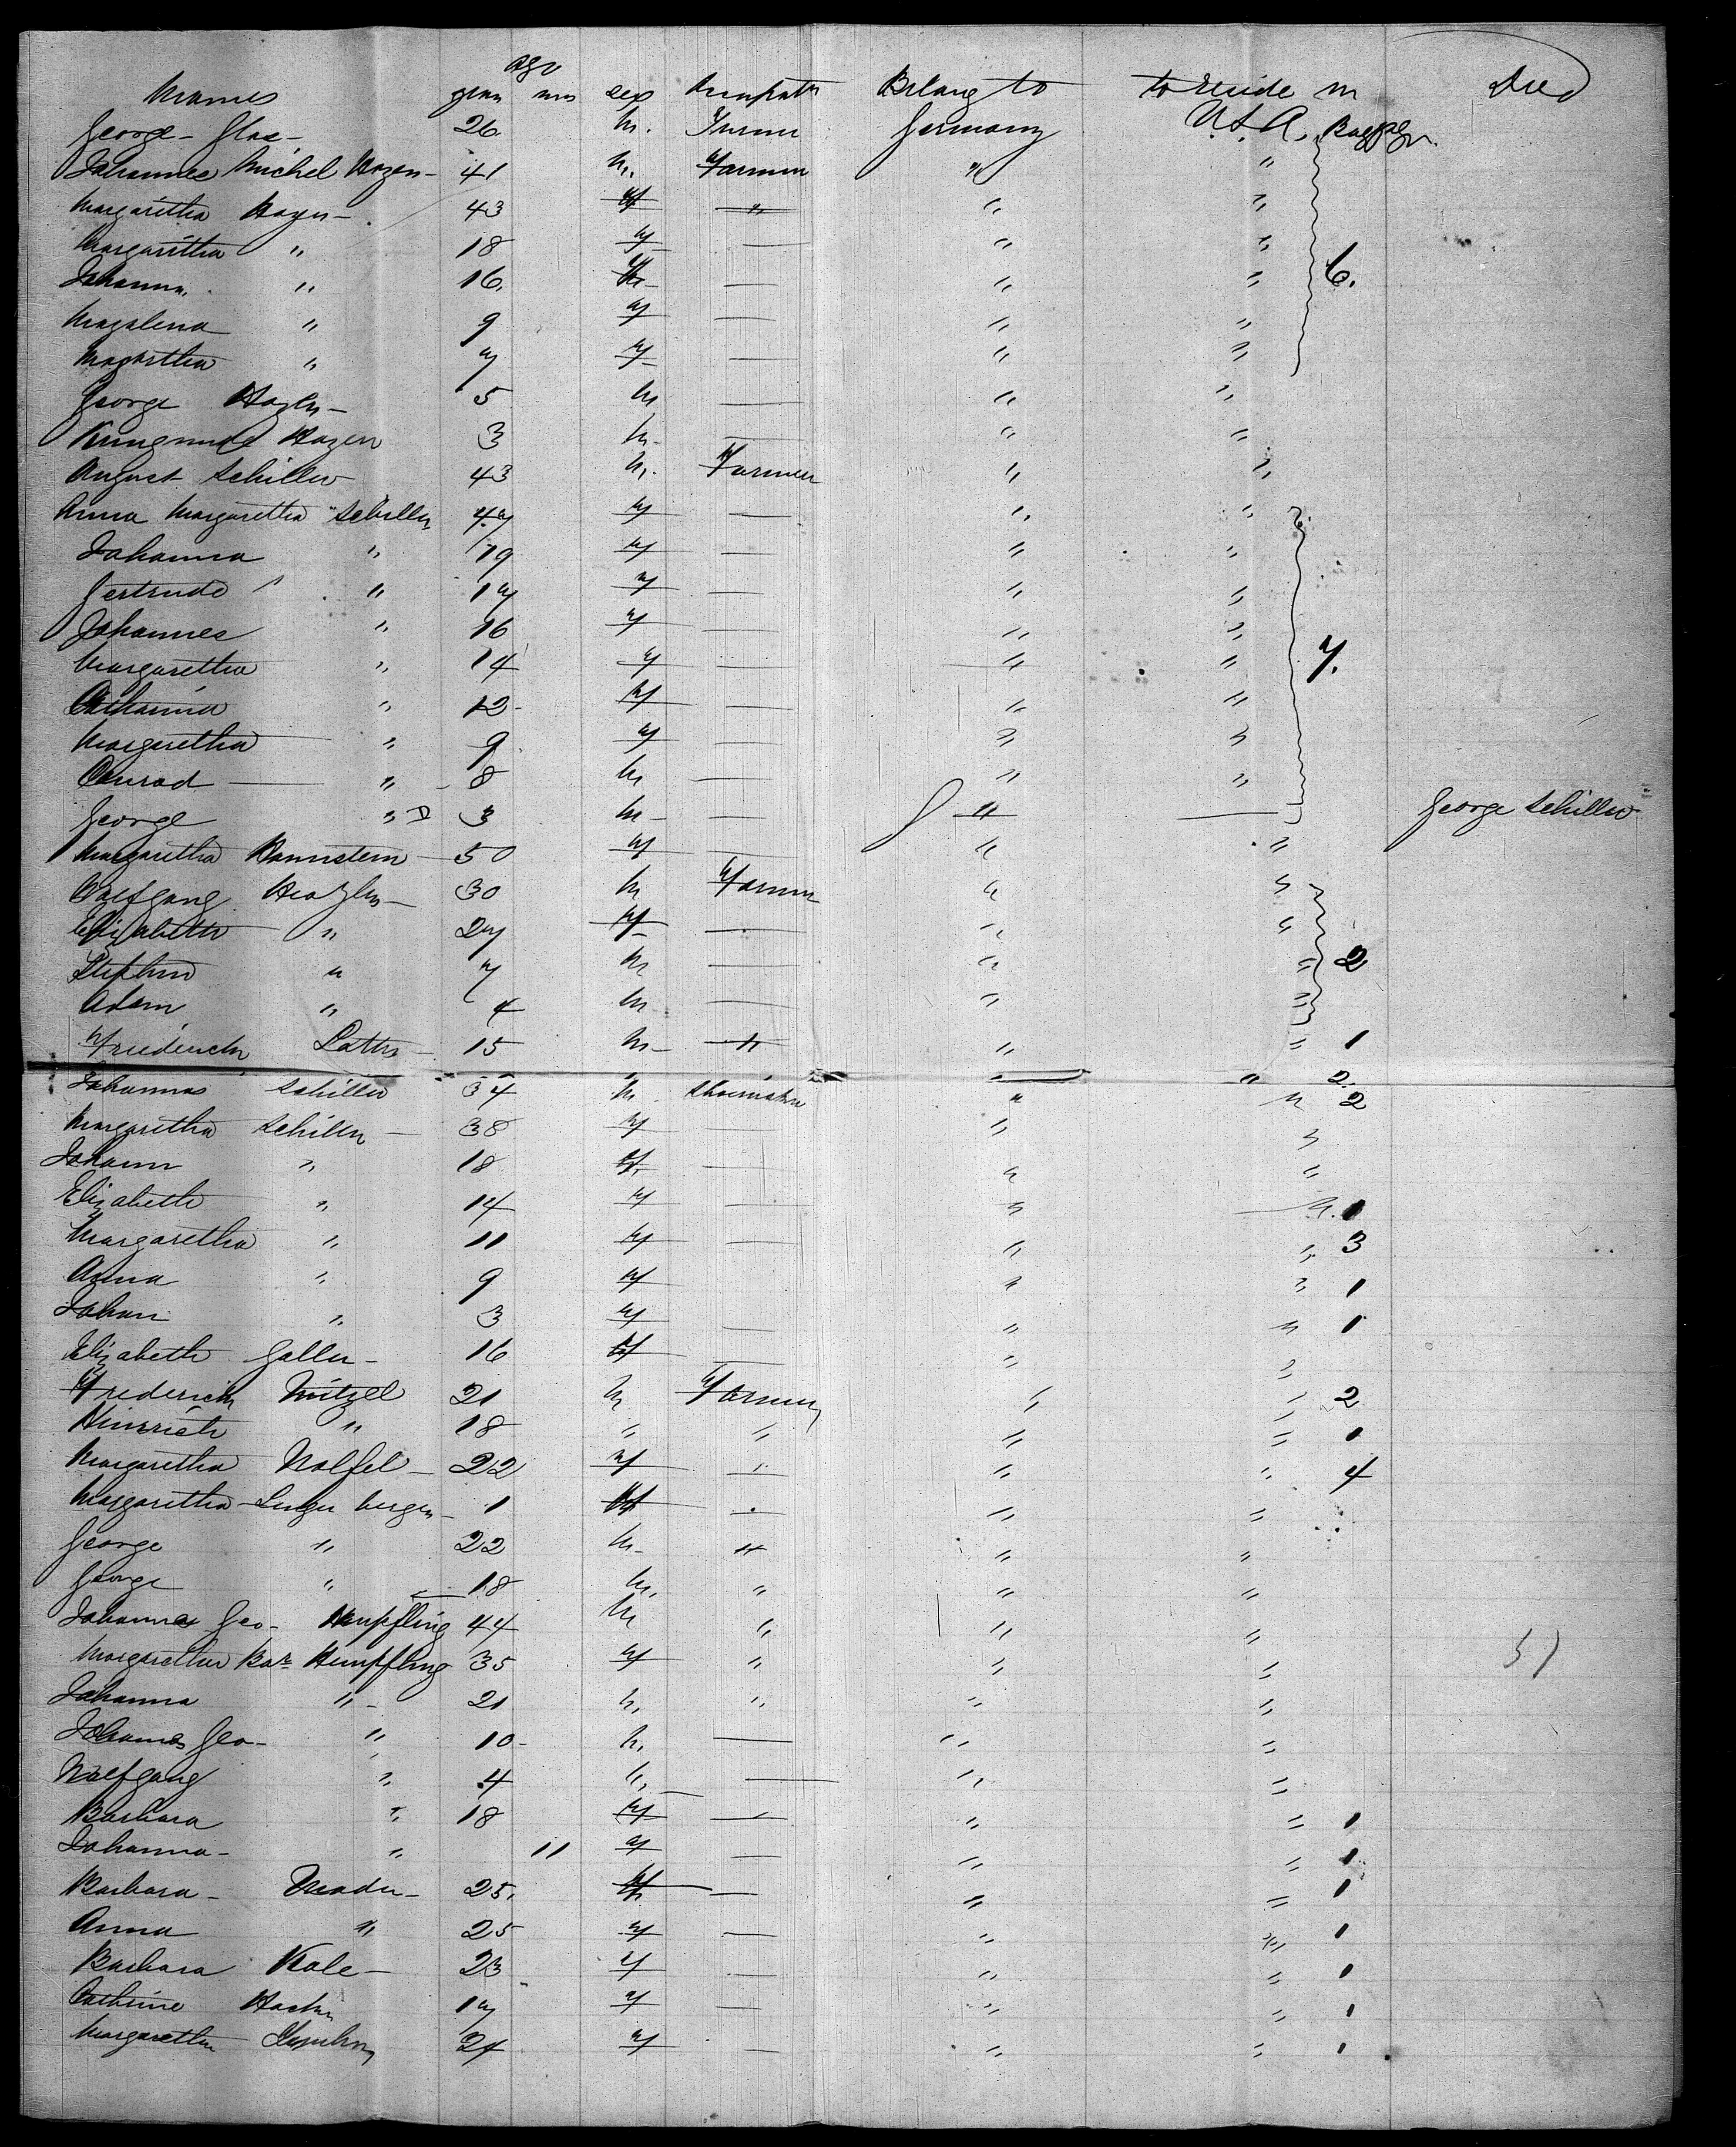 Names age years mos sex Occupatn Belong to to reside in Died
George - Glas - 26 M. Germany U.S.A. Baggage
Johannes Michel Hazen - 41 M. Farmer " "
Margaretha Hazen - 43 F " " "
Margaretha " 18 F — " "
Johanna " 16. F — " " 6.
Magalena " 9 F — " "
Magaretha " 7 F — " "
George Hazen - 5 M — " "
Hazen 3 M - — " "
August Schiller 43 M. Farmer " "
Anna Margaretha Schiller 47 F — " "
Johanna " 19 F — " "
Gertrude " 17 F — " "
Johannes " 16 F — " "
Margaretha " 14 F — " " 7.
Catharina " 12 - F — " "
Margaretha " 9 F — " "
Conrad — " 8 M — " "
George " D 3 M - — " — George Schiller
Margaretha Bornstein 50 F — " "
Wolfgang 30 M Farmer " "
Elizabeth " 27 F — " "
Stephen " 7 M — " " 2
Adam " 4 M — " "
Friederich 15 M - " " " 1
Johannes Schiller 34 M. Shoemaker " " 2
Margaretha Schiller - 38 F — " "
Johann " 18 F — " "
Elizabeth " 14 F — " " 1
Margaretha " 11 F — " " 3
Anna " 9 F " " 1
Johan " 3 F — " " 1
Elizabeth Galler - 16 F — " "
Frederich Witzel 21 M Farmer " " 2
Heinrich " 18 " " " " 1
Margaretha Wolfel - 22 F — " " 4
Margaretha - 1 F - " "
George " 22 M - " " "
George " 18 M. " " "
Johannes Geo - Hempfling 44 M " " "
Margaretha Bar Hempfling 35 F " " " 51
Johanna " - 21 M. " " "
Johannes Geo - " 10 - M. — " "
Wolfgang " 4 M. — " "
Barbara " 18 F — " " 1
Johanna - " 11 F — " " 1
Barbara - Mader - 25. F — " " 1
Anna " 25 F — " " 1
Barbara Kole - 23 F — " " 1
Catherine 17 F — " " 1
Margaretha 24 F — " " 1